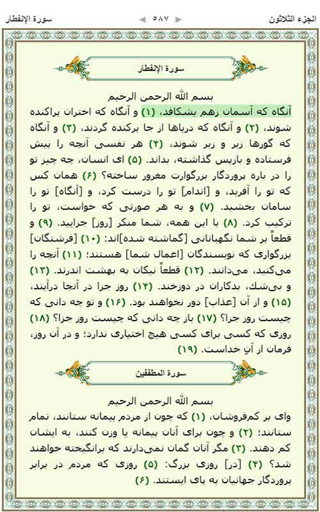 الجزء الثلاثون ٥٨٧ سورة الإنفطار
سورة الإنفطار
بسم الله الرحمن الرحيم
آنگاه که آسمان زهم بشکافد، (۱) و آنگاه که اختران پراکنده
شوند، (۲) و آنگاه که دریاها از جا برکنده گردند، (۳) و آنگاه
که گورها زیر و زبر شوند، (۴) هر نفسی آنچه را پیش
فرستاده و بازپس گذاشته، بداند. (۵) ای انسان، چه چیز تو
را در باره پروردگار بزرگوارت مغرور ساخته؟ (۶) همان کس
که تو را آفرید، و [اندام] تو را درست کرد، و [آنگاه] تو را
سامان بخشید. (۷) و به هر صورتی که خواست، تو را
ترکیب کرد. (۸) با این همه، شما منکر [روز] جزایید. (۹) و
قطعاً بر شما نگهبانانی [گماشته شده]اند: (۱۰) [فرشتگان]
بزرگواری که نویسندگان [اعمال شما] هستند؛ (۱۱) آنچه را
می‌کنید، می‌دانند. (۱۲) قطعاً نیکان به بهشت اندرند. (۱۳)
و بی‌شك، بدکاران در دوزخند. (۱۴) روز جزا در آنجا درآیند،
(۱۵) و از آن [عذاب] دور نخواهند بود. (۱۶) و تو چه دانی که
چیست روز جزا؟ (۱۷) باز چه دانی که چیست روز جزا؟ (۱۸)
روزی که کسی برای کسی هیچ اختیاری ندارد؛ و در آن روز،
فرمان از آنِ خداست. (۱۹)
سورة المطففين
بسم الله الرحمن الرحيم
وای بر کم‌فروشان، (۱) که چون از مردم پیمانه ستانند، تمام
ستانند؛ (۲) و چون برای آنان پیمانه یا وزن کنند، به ایشان
کم دهند. (۳) مگر آنان گمان نمی‌دارند که برانگیخته خواهند
شد؟ (۴) [در] روزی بزرگ: (۵) روزی که مردم در برابر
پروردگار جهانیان به پای ایستند. (۶)